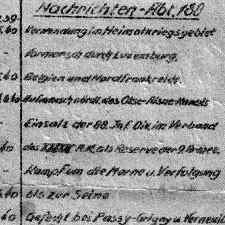 Nachrichten-Abt. 180
39
5.40 Verwendung im Heimatkriegsgebiet
Vormarsch durch Luxemburg,
5.40 Belgien und Nordfrankreich.
6.40 nördl. des Oise-Aisne-Kanals
Einsatz der 68. Inf. Div. im Verband
40 des A.K. als Reserve der 9. Armee.
Kampf um die Marne u. Verfolgung
6.40 bis zur Seine
6.40 Gefecht bei Passy-Grigny u. Verneuil